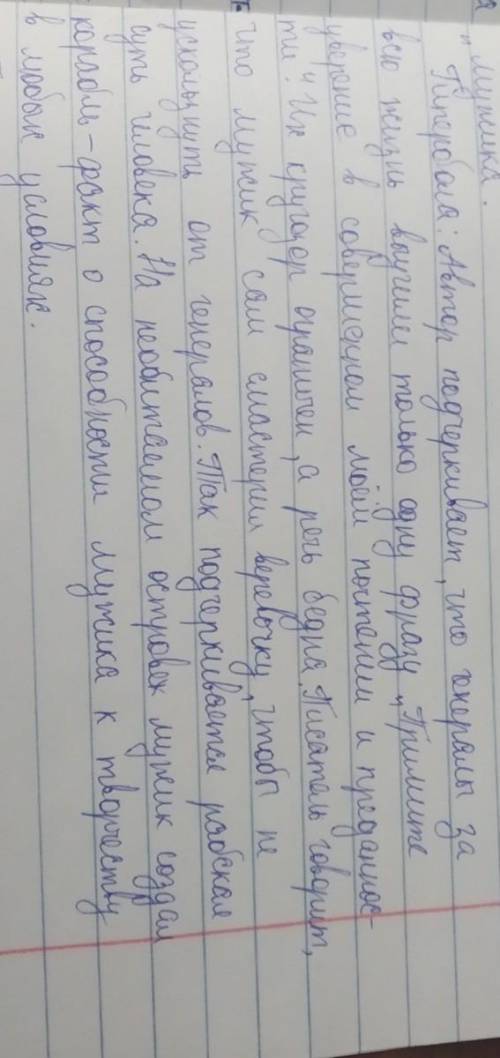 " мужика.
Гипербола: Автор подчеркивает, что генералы за
всю жизнь выучили только одну фразу „Примите
уверение в совершенном моём почтении и преданнос-
ти". Их кругозор ограничен, а речь бедна. Писатель говорит,
что мужик сам смастерил веревочку, чтобы не
ускользнуть от генералов. Так подчеркивается рабская
суть человека. На необитаемом островек мужик создал
корабль-факт о способности мужика к творчеству
в любых условиях.